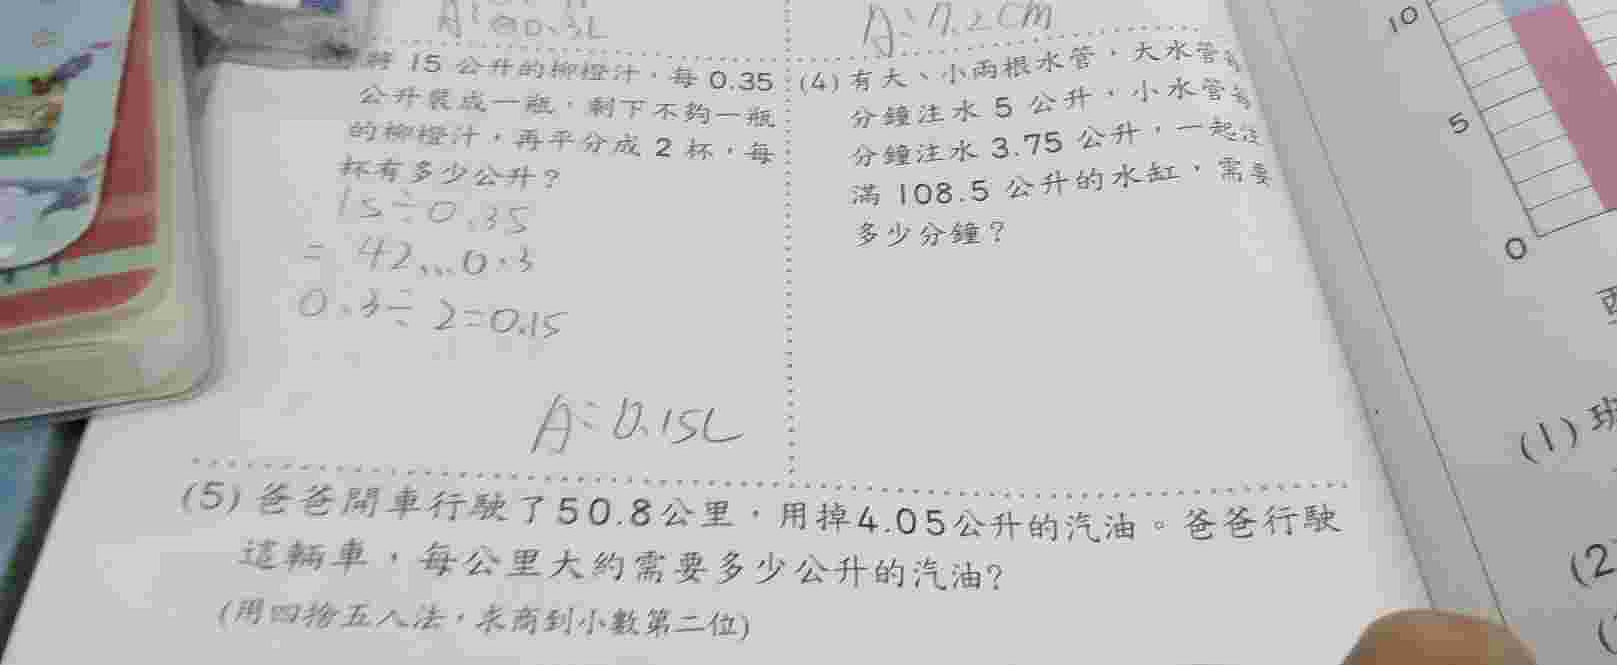 A:0.3L
A:7.2cm
將 15 公升的柳橙汁，每 0.35
公升裝成一瓶，剩下不夠一瓶
的柳橙汁，再平分成 2 杯，每
杯有多少公升？
15÷0.35
= 42...0.3
0.3÷2=0.15
A:0.15L
(4) 有大、小兩根水管，大水管每
分鐘注水 5 公升，小水管每
分鐘注水 3.75 公升，一起注
滿 108.5 公升的水缸，需要
多少分鐘？
(5) 爸爸開車行駛了50.8公里，用掉4.05公升的汽油。爸爸行駛
這輛車，每公里大約需要多少公升的汽油?
(用四捨五入法，求商到小數第二位)
10
5
0
(1) 班
(2